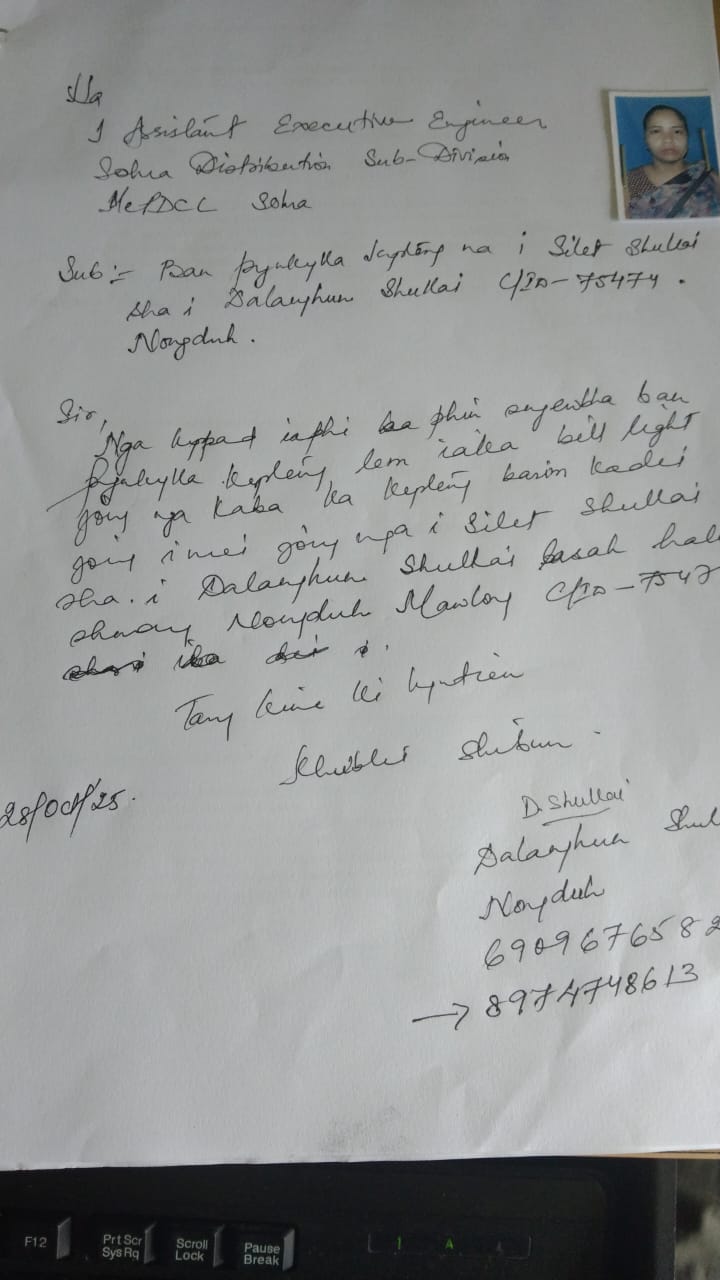 Sha
I Assistant Executive Engineer
Sohra Distribution Sub-Division
MePDCL Sohra
Sub :- Ban pynkylla kyrteng na i Silet Shullai
sha i Dalanghun Shullai C/ID-75474.
Nongduh.
Sir,
Nga kyrpad iaphi ba phin sngewbha ban
pynkylla kyrteng lem iaka bill light
jong nga kaba ka kyrteng barim kadei
jong i mei jong nga i Silet Shullai
sha. i Dalanghun Shullai basah hale
shnong Nongduh Mawlong C/ID-7547
Tang kine ki kyntien
Khublei Shibun.
28/Oct/25.
D. Shullai
Dalanghun Shul
Nongduh
690967658
→ 8974748613
F12
Prt Scr
Sys Rq
Scroll
Lock
Pause
Break
1 A